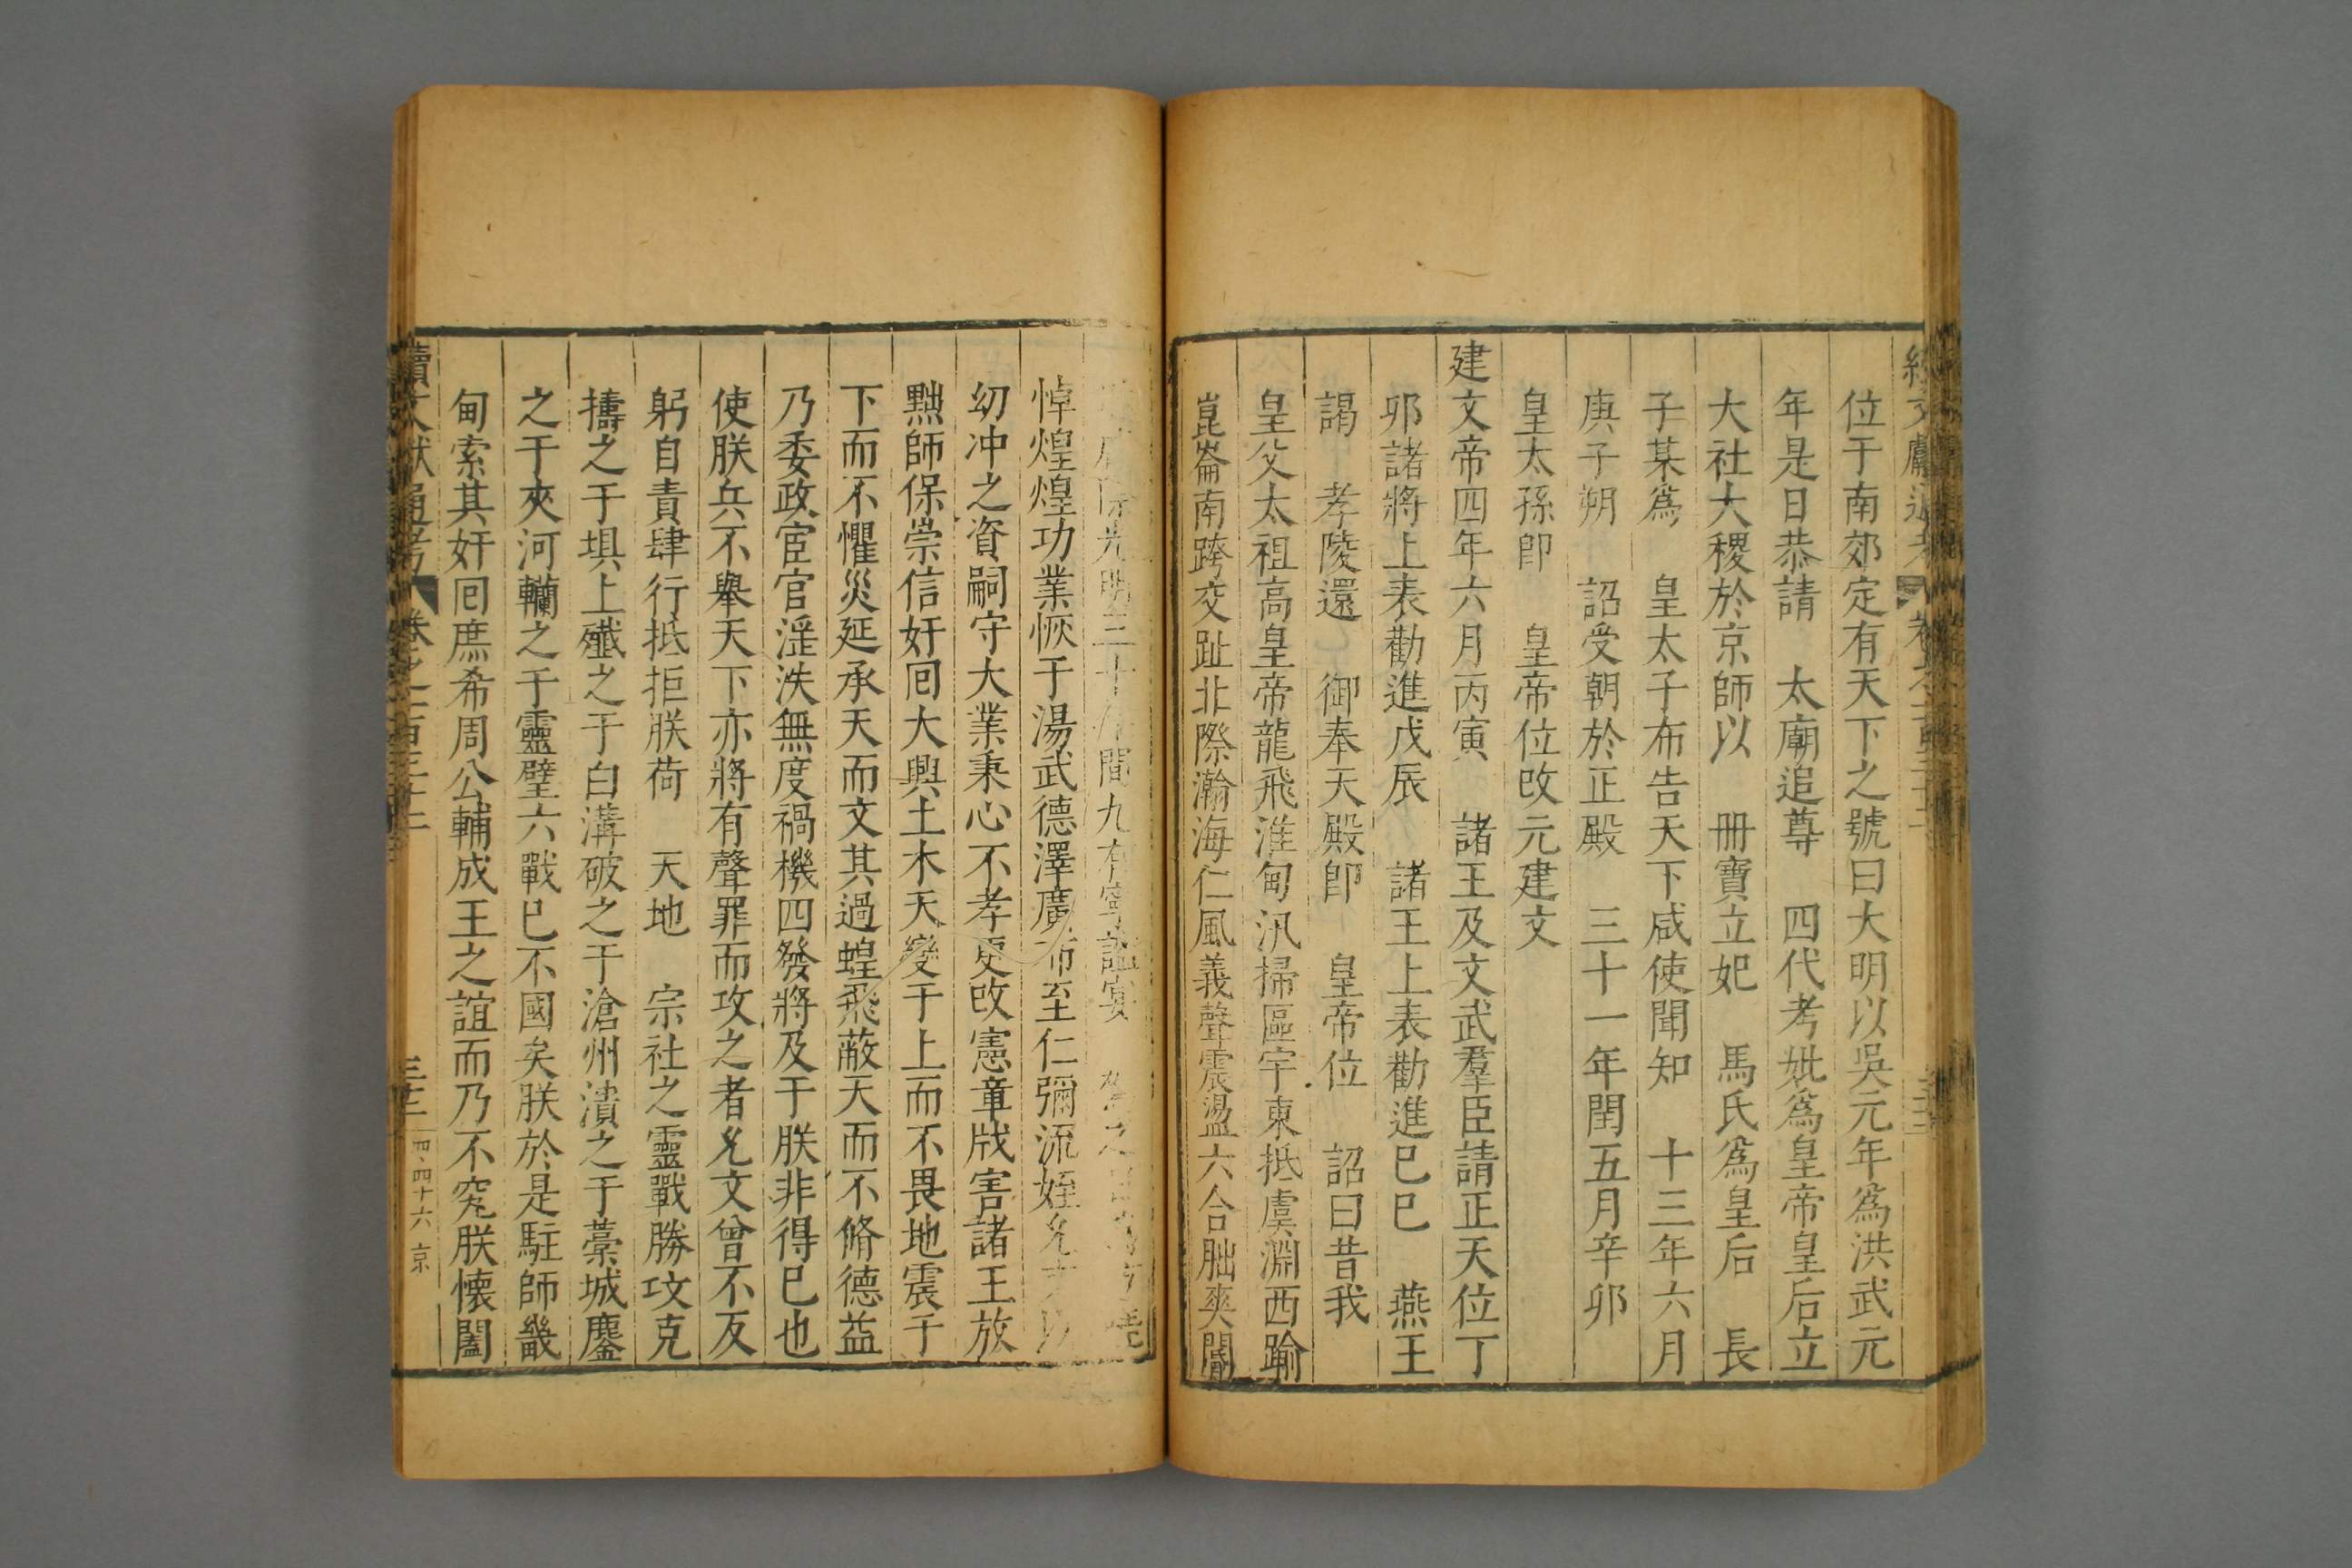 位于南郊定有天下之號曰大明以吳元年爲洪武元
年是日恭請　太廟追尊　四代考妣爲皇帝皇后立
大社大稷於京師以　冊寶立妃　馬氏爲皇后　長
子某爲　皇太子布告天下咸使聞知　十三年六月
庚子朔　詔受朝於正殿　三十一年閏五月辛卯
皇太孫卽　皇帝位改元建文
建文帝四年六月丙寅　諸王及文武羣臣請正天位丁
夘諸將上表勸進戊辰　諸王上表勸進巳巳　燕王
謁　孝陵還　御奉天殿卽　皇帝位　詔曰昔我
皇父太祖高皇帝龍飛淮甸汛掃區宇東抵虞淵西踰
崑崙南跨交趾北際瀚海仁風義聲震盪六合曶爽闇
光明三十年間九有寧謐宴
悼煌煌功業恢于湯武德澤廣布至仁彌流姪允
幼冲之資嗣守大業秉心不孝更改憲章戕害諸王放
黜師保崇信奸回大興土木天變于上而不畏地震于
下而不懼災延承天而文其過蝗飛蔽天而不脩德益
乃委政宦官滛泆無度禍機四發將及于朕非得已也
使朕兵不舉天下亦將有聲罪而攻之者允文曾不反
躬自責肆行抵拒朕荷　天地　宗社之靈戰勝攻克
擣之于埧上殲之于白溝破之于滄州潰之于藁城鏖
之于夾河轥之于靈璧六戰已不國矣朕於是駐師畿
甸索其奸回庶希周公輔成王之誼而乃不究朕懷闔
續文獻通考　卷之一百三十二　三十二　四四十六　京